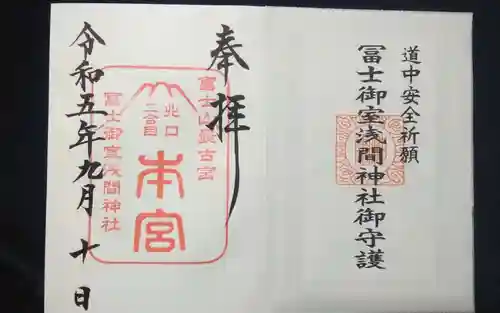 道中安全祈願
冨士御室浅間神社御守護
奉拝
冨士山最古宮
北口
二合目
本宮
冨士御室浅間神社
令和五年九月十日